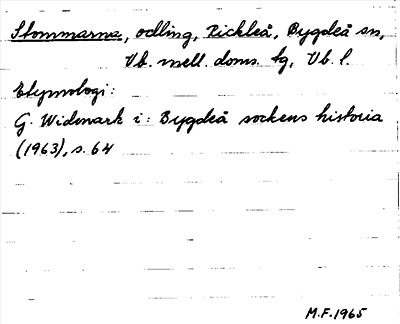 Stommarna, odling, Rickleå, Bygdeå sn,
Vb. mell. doms. tg, Vb. l.
Etymologi:
G. Widmark i: Bygdeå sockens historia
(1963), s. 64
M.F. 1965